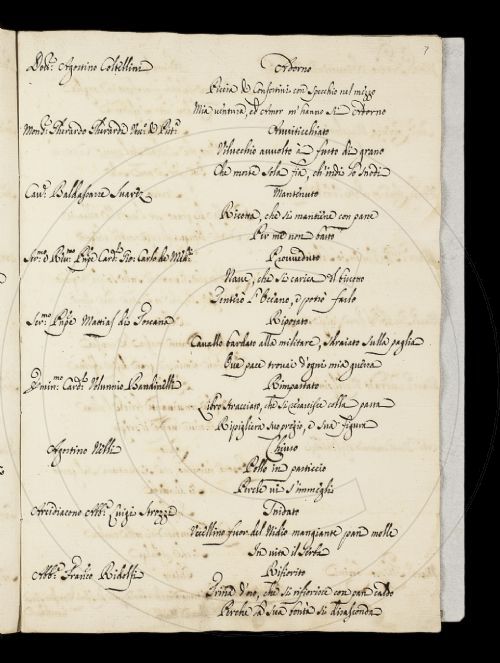 7
Dott.r Agostino Coltellini Adorno
Piccia di Confortini con Specchio nel mezzo
Mia ventura, ed Amor m'hanno sì Adorno
Mons.r Gherardo Gherardi Vesc.o di Pist.a Avviticchiato
Vilucchio avvolto a fusto di grano
Che morte sola fia, ch'indi lo snodi
Cav.r Baldassarre Suarez Mantenuto
Ricotta, che si mantiene con pane
Per me non basto
Ser.mo e Rev.mo Pnpe Card.l Gio: Carlo de Med.i Provveduto
Nave, che si carica di biscotto
Dentro l'Oceano, e potrò farlo
Ser.mo Pnpe Mattias di Toscana Riposato
Cavallo bardato alla militare, sdraiato sulla paglia
Ove pace trovai d'ogni mia guerra
Emin.mo Card.l Volunnio Bandinelli Rimpastato
Libro stracciato, che si risarcisce colla pasta
Ripiglierà suo pregio, e sua figura
Agostino Nelli Chiuso
Pollo in pasticcio
Perchè vi s'immegli
Arcidiacono Abb.e Luigi Strozzi Snidato
Uccellino fuor del Nidio mangiante pan molle
In vita il serba
Abb.e Franc.o Ridolfi Rifiorito
Trina d'oro, che si rifiorisce con pan caldo
Perchè la sua bontà si disasconda